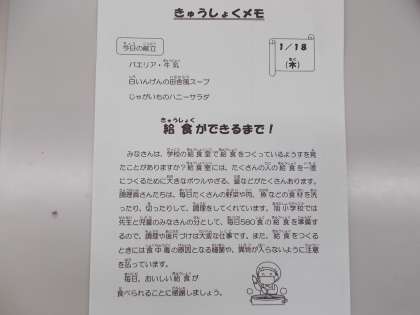 きゅうしょくメモ
今日の献立
1／18
（木）
パエリア・牛乳
白いんげんの田舎風スープ
じゃがいものハニーサラダ
給食ができるまで！
みなさんは、学校の給食室で給食をつくっているようすを見
たことがありますか？給食室には、たくさんの人の給食を一度
につくるために大きなボウルやざる、釜などがたくさんあります。
調理員さんたちは、毎日たくさんの野菜や肉、魚などの食材を洗
ったり、切ったりして、調理をしてくれています。南小学校では
先生と児童のみなさんの分として、毎日580食の給食を準備する
ので、調理や後片づけは大変な仕事です。また、給食をつくる
ときには食中毒の原因となる細菌や、異物が入らないように注意
を払っています。
毎日、おいしい給食が
食べられることに感謝しましょう。